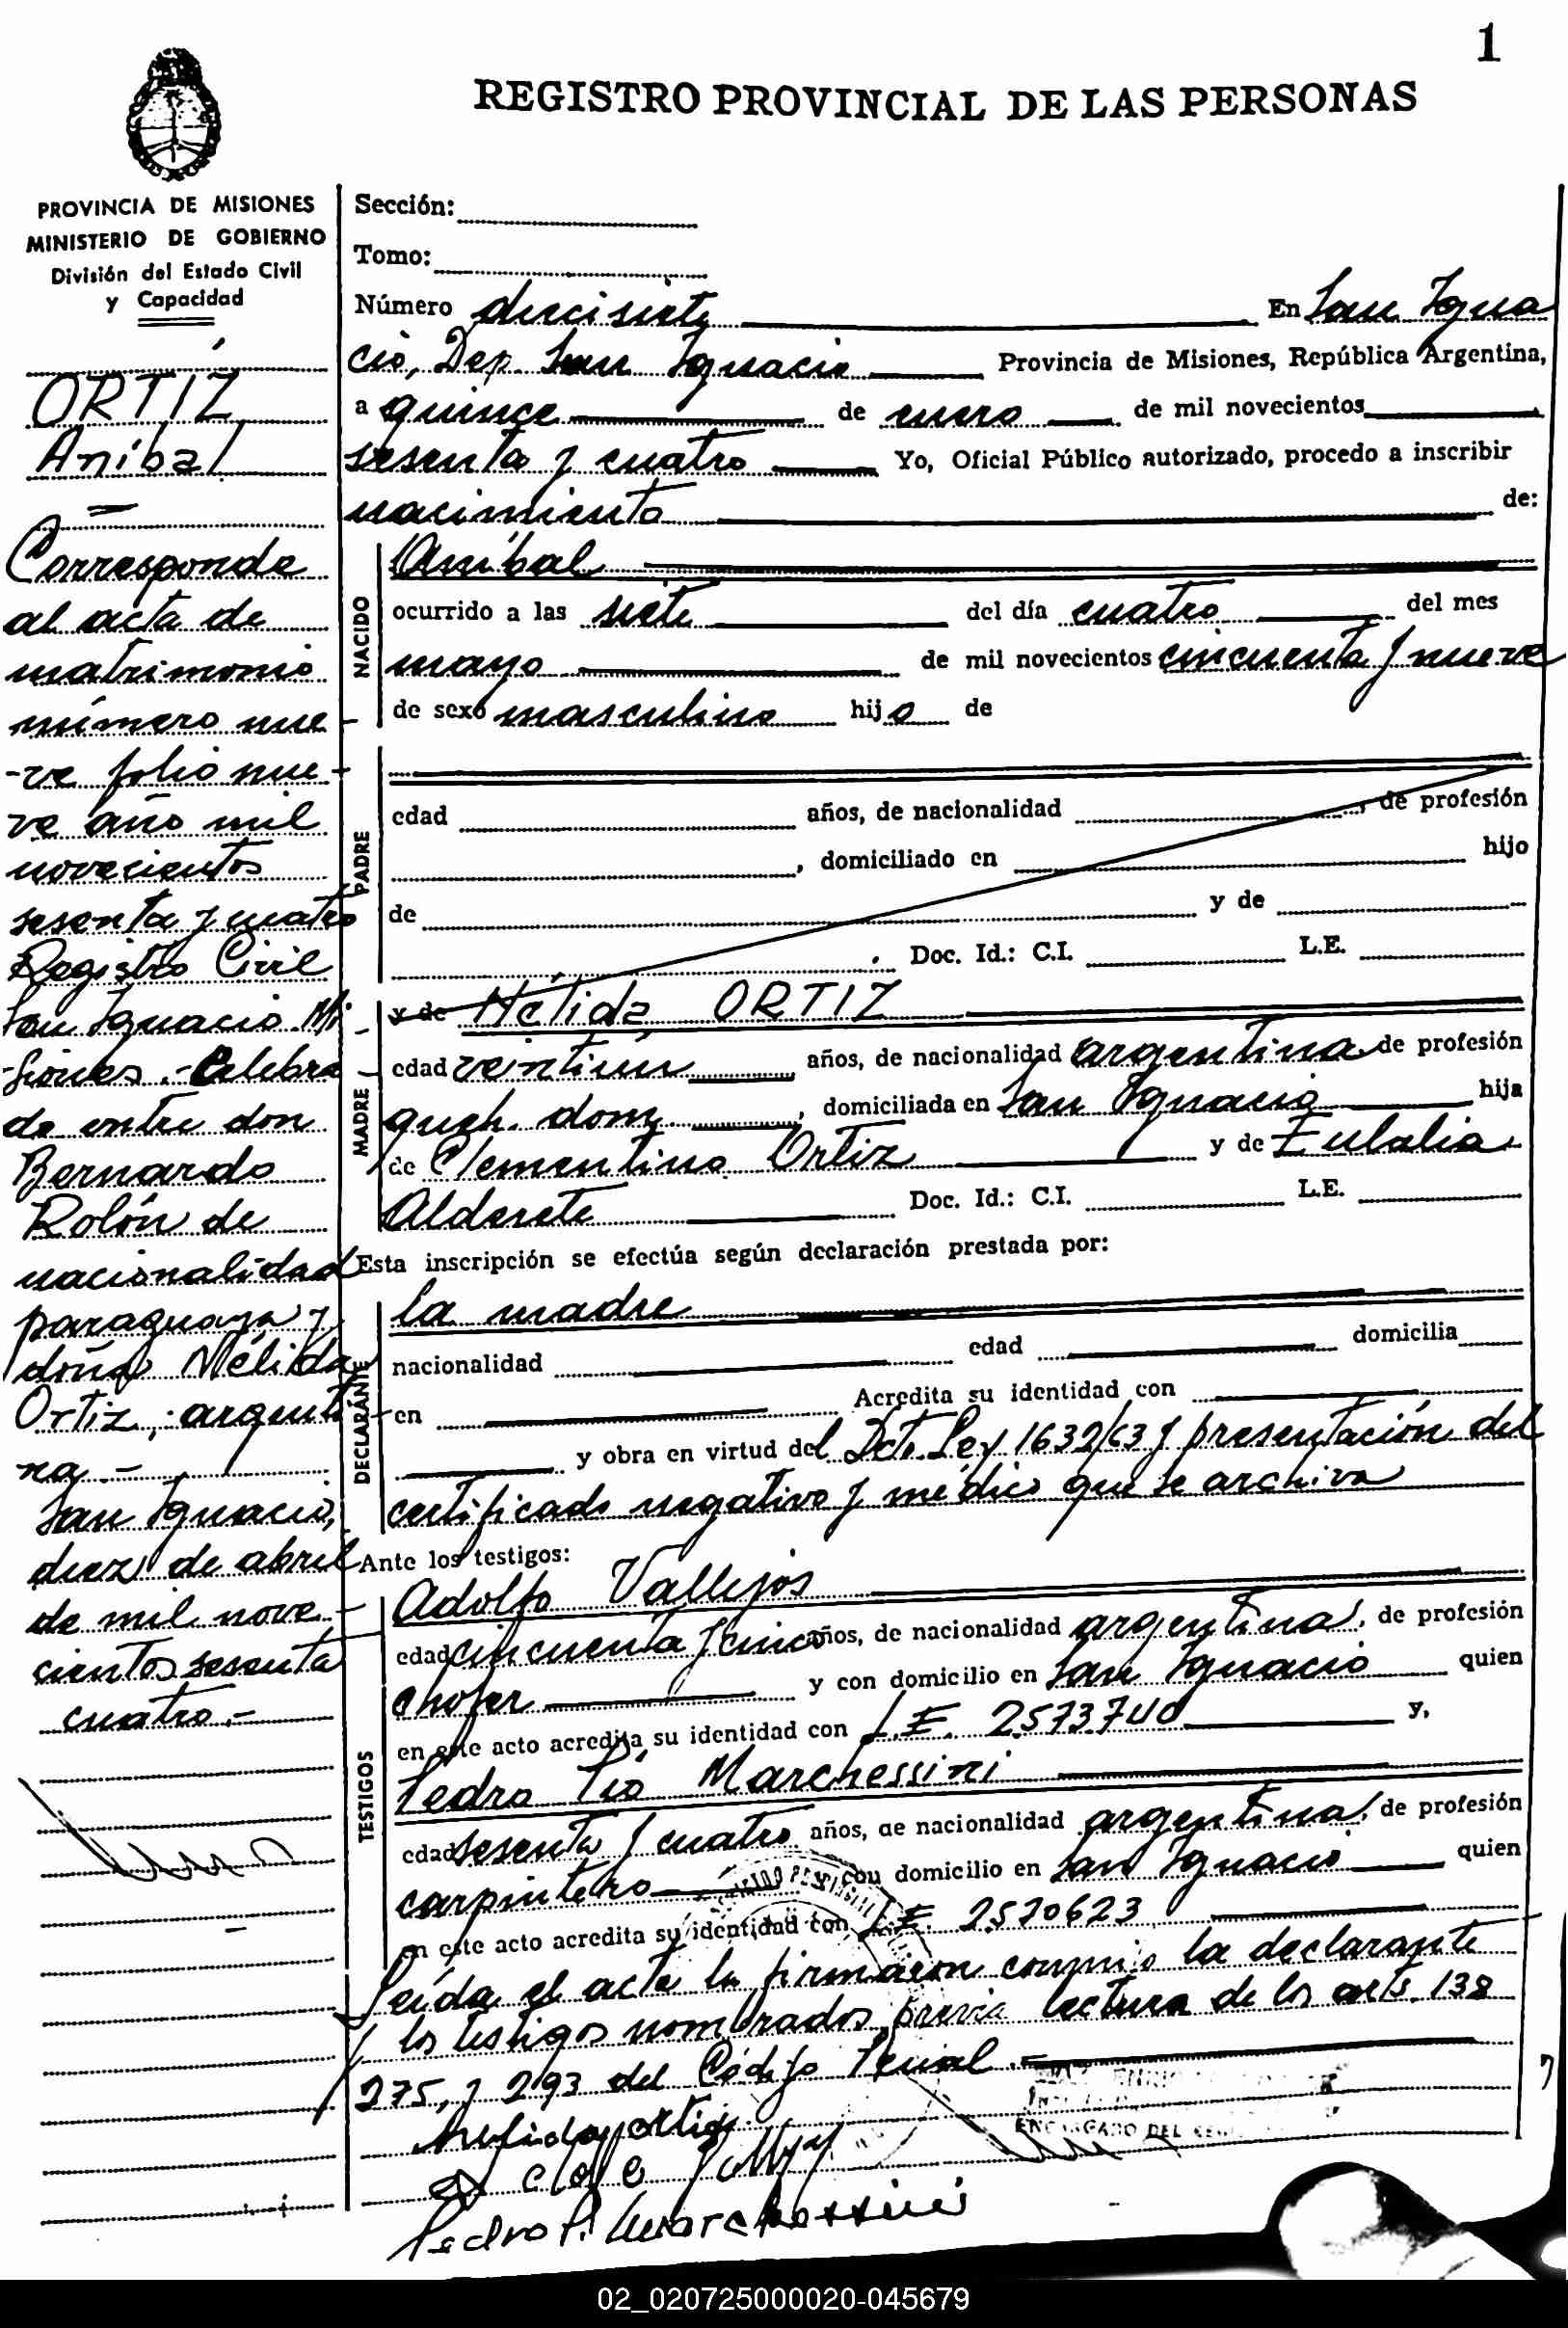 1
REGISTRO PROVINCIAL DE LAS PERSONAS
PROVINCIA DE MISIONES
MINISTERIO DE GOBIERNO
División del Estado Civil
y Capacidad
ORTIZ
Aníbal
Corresponde
al acta de
matrimonio
número nue-
-ve folio nue-
ve año mil
novecientos
sesenta y cuatro
Registro Civil
San Ignacio Mi-
siones.- Celebra-
do entre don
Bernardo
Rolón de
nacionalidad
paraguaya y
doña Nélida
Ortiz, argenti-
na.-
San Ignacio,
diez de abril
de mil nove-
cientos sesenta
cuatro.-
Sección:
Tomo:
Número diecisiete En San Igna
cio, Dep. San Ignacio Provincia de Misiones, República Argentina,
a quince de enero de mil novecientos
sesenta y cuatro Yo, Oficial Público autorizado, procedo a inscribir
nacimiento de:
NACIDO
Aníbal
ocurrido a las siete del día cuatro del mes
mayo de mil novecientos cincuenta y nueve
de sexo masculino hijo de
PADRE
edad años, de nacionalidad , de profesión
, domiciliado en hijo
de y de
. Doc. Id.: C.I. L.E.
MADRE
y de Nélida ORTIZ
edad veintiún años, de nacionalidad argentina de profesión
queh. dom. , domiciliada en San Ignacio hija
de Clementino Ortiz y de Eulalia
Alderete Doc. Id.: C.I. L.E.
Esta inscripción se efectúa según declaración prestada por:
DECLARANTE
la madre
nacionalidad edad domicilia
en Acredita su identidad con
y obra en virtud del Dcto. Ley 1632/63 y presentación del
certificado negativo y médico que se archiva
Ante los testigos:
TESTIGOS
Adolfo Vallejos
edad cincuenta y cinco años, de nacionalidad argentina, de profesión
chofer y con domicilio en San Ignacio quien
en este acto acredita su identidad con L.E. 2573740 y,
Pedro Pío Marchessini
edad sesenta y cuatro años, de nacionalidad argentina, de profesión
carpintero y con domicilio en San Ignacio quien
en este acto acredita su identidad con L.E. 2520623
Leída el acta la firmaron conmigo la declarante
y los testigos nombrados, previa lectura de los arts. 138
275, y 293 del Código Penal.-
Nelida ortiz
Pedro P. Marchessini
ENCARGADO DEL
02_020725000020-045679